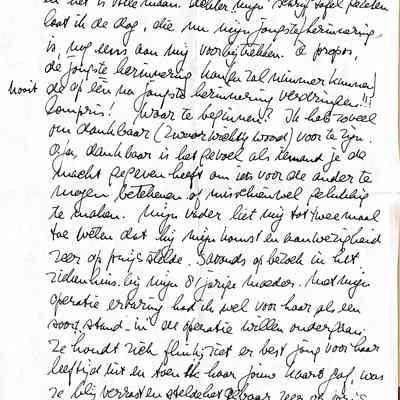 en het is volle maan. Achter mijn schrijftafel gezeten
laat ik de dag, die nu mijn jongste herinnering
is, nog eens aan mij voorbijtrekken. À propos,
de jongste herinnering kan en zal nimmer kunnen
nooit de op één na jongste herinnering verdringen!!!
Compris! Waar te beginnen? Ik heb zoveel
om dankbaar (zwaarwichtig woord) voor te zijn.
O ja, dankbaar is het gevoel als iemand je de
macht gegeven heeft om iets voor die ander te
mogen betekenen of misschien wel gelukkig
te maken. Mijn vader liet mij tot tweemaal
toe weten dat hij mijn komst en aanwezigheid
zeer op prijs stelde. 's avonds op bezoek in het
ziekenhuis bij mijn 81 jarige moeder. Met mijn
operatie ervaring had ik wel voor haar als een
soort stand-in de operatie willen ondergaan.
Ze houdt zich flink, ziet er best jong voor haar
leeftijd uit en toen ik haar jouw kaart gaf, was
ze blij verrast en stelde het gebaar zeer op prijs